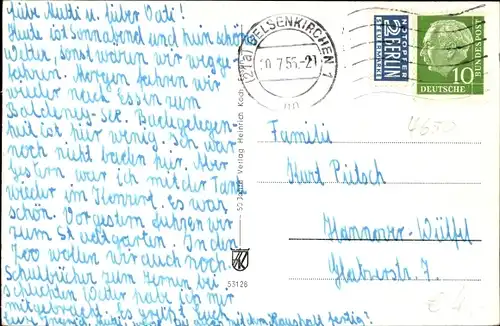 Liebe Mutti u. lieber Vati!
Heute ist Sonnabend und kein schönes
Wetter, sonst wären wir weggefahren.
Morgen fahren wir
wieder nach Essen zum
Baldeney-See. Badegelegenheit
ist hier wenig. Ich war
noch nicht baden hier. Aber
gestern war ich mit der Tante
wieder im Konzert. es war
schön. Vorgestern fuhren wir
zum Stadtgarten. In den
Zoo wollen wir auch noch.
Schulbücher zum lernen bei
schlechten Wetter habe ich mir
mitgebracht. es grüßt Euch
Eure
mit dem Haushalt fertig?
53128
Verlag Heinrich Koch
(21a) GELSENKIRCHEN 1
7.55.-21
NOTOPFER
2 BERLIN
STEUERMARKE
10
DEUTSCHE
BUNDESPOST
4650
Familie
Kurt Pütsch
Hannover-Wülfel
Glatzerstr. 7.